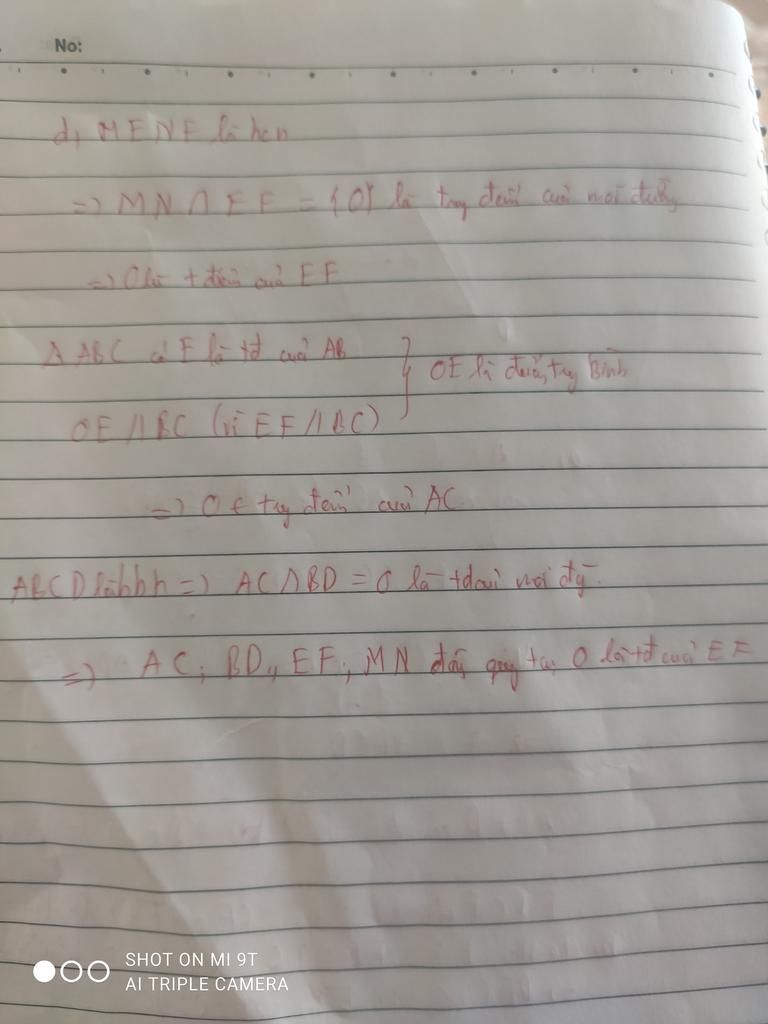 No:
d, MENF là hcn
=> MN ∩ EF = {O} là trg điểm của mỗi đường
=> O là t điểm của EF
Δ ABC có E là tđ của AB
OE // BC (vì EF // BC)
} OE là đường trg Bình
=> O là trg điểm của AC
ABCD là hbh => AC ∩ BD = O là tđ của mỗi đg
=> AC; BD,, EF; MN đồng quy tại O là tđ của EF
SHOT ON MI 9T
AI TRIPLE CAMERA